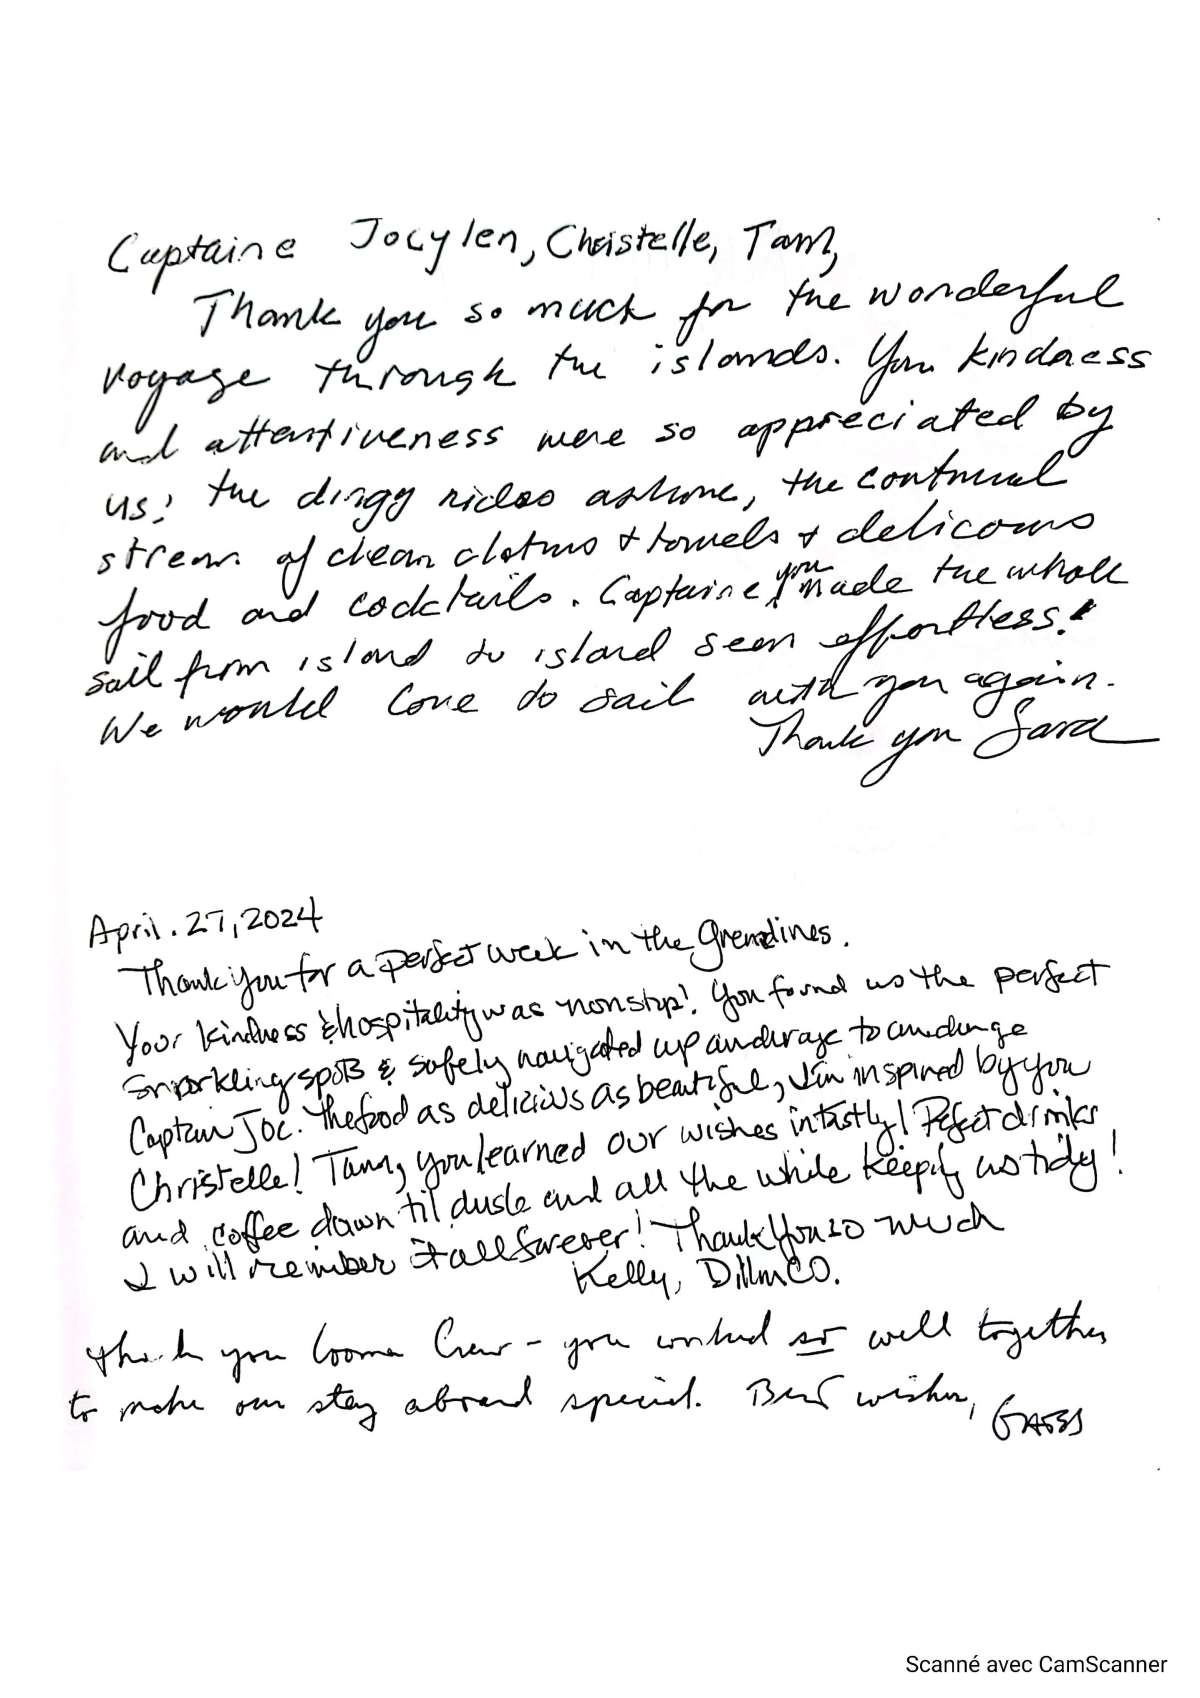 Captaine Jocylen, Christelle, Tam,
Thank you so much for the wonderful
voyage through the islands. Your kindness
and attentiveness were so appreciated by
us: the dingy rides ashore, the continual
stream of clean clothes & towels & delicious
food and cocktails. Captaine, you made the whole
sail from island to island seem effortless!
We would love to sail with you again.
Thank you Sara
April. 27, 2024
Thank you for a perfect week in the Grenadines.
Your kindness & hospitality was nonstop! You found us the perfect
snorkling spots & safely navigated up anchorage to anchorage
Captain Joc. The food as delicious as beautiful, I'm inspired by you
Christelle! Tam, you learned our wishes instantly! Perfect drinks
and coffee dawn 'til dusk and all the while keeping us tidy!
I will remember it all forever! Thank You so much
Kelly, CO.
thank you Crew - you worked so well together
to make our stay aboard special. Best wishes,